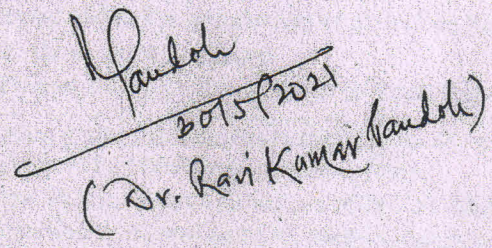 Pandoh
30/5/2021
(Dr. Ravi Kumar Pandoh)